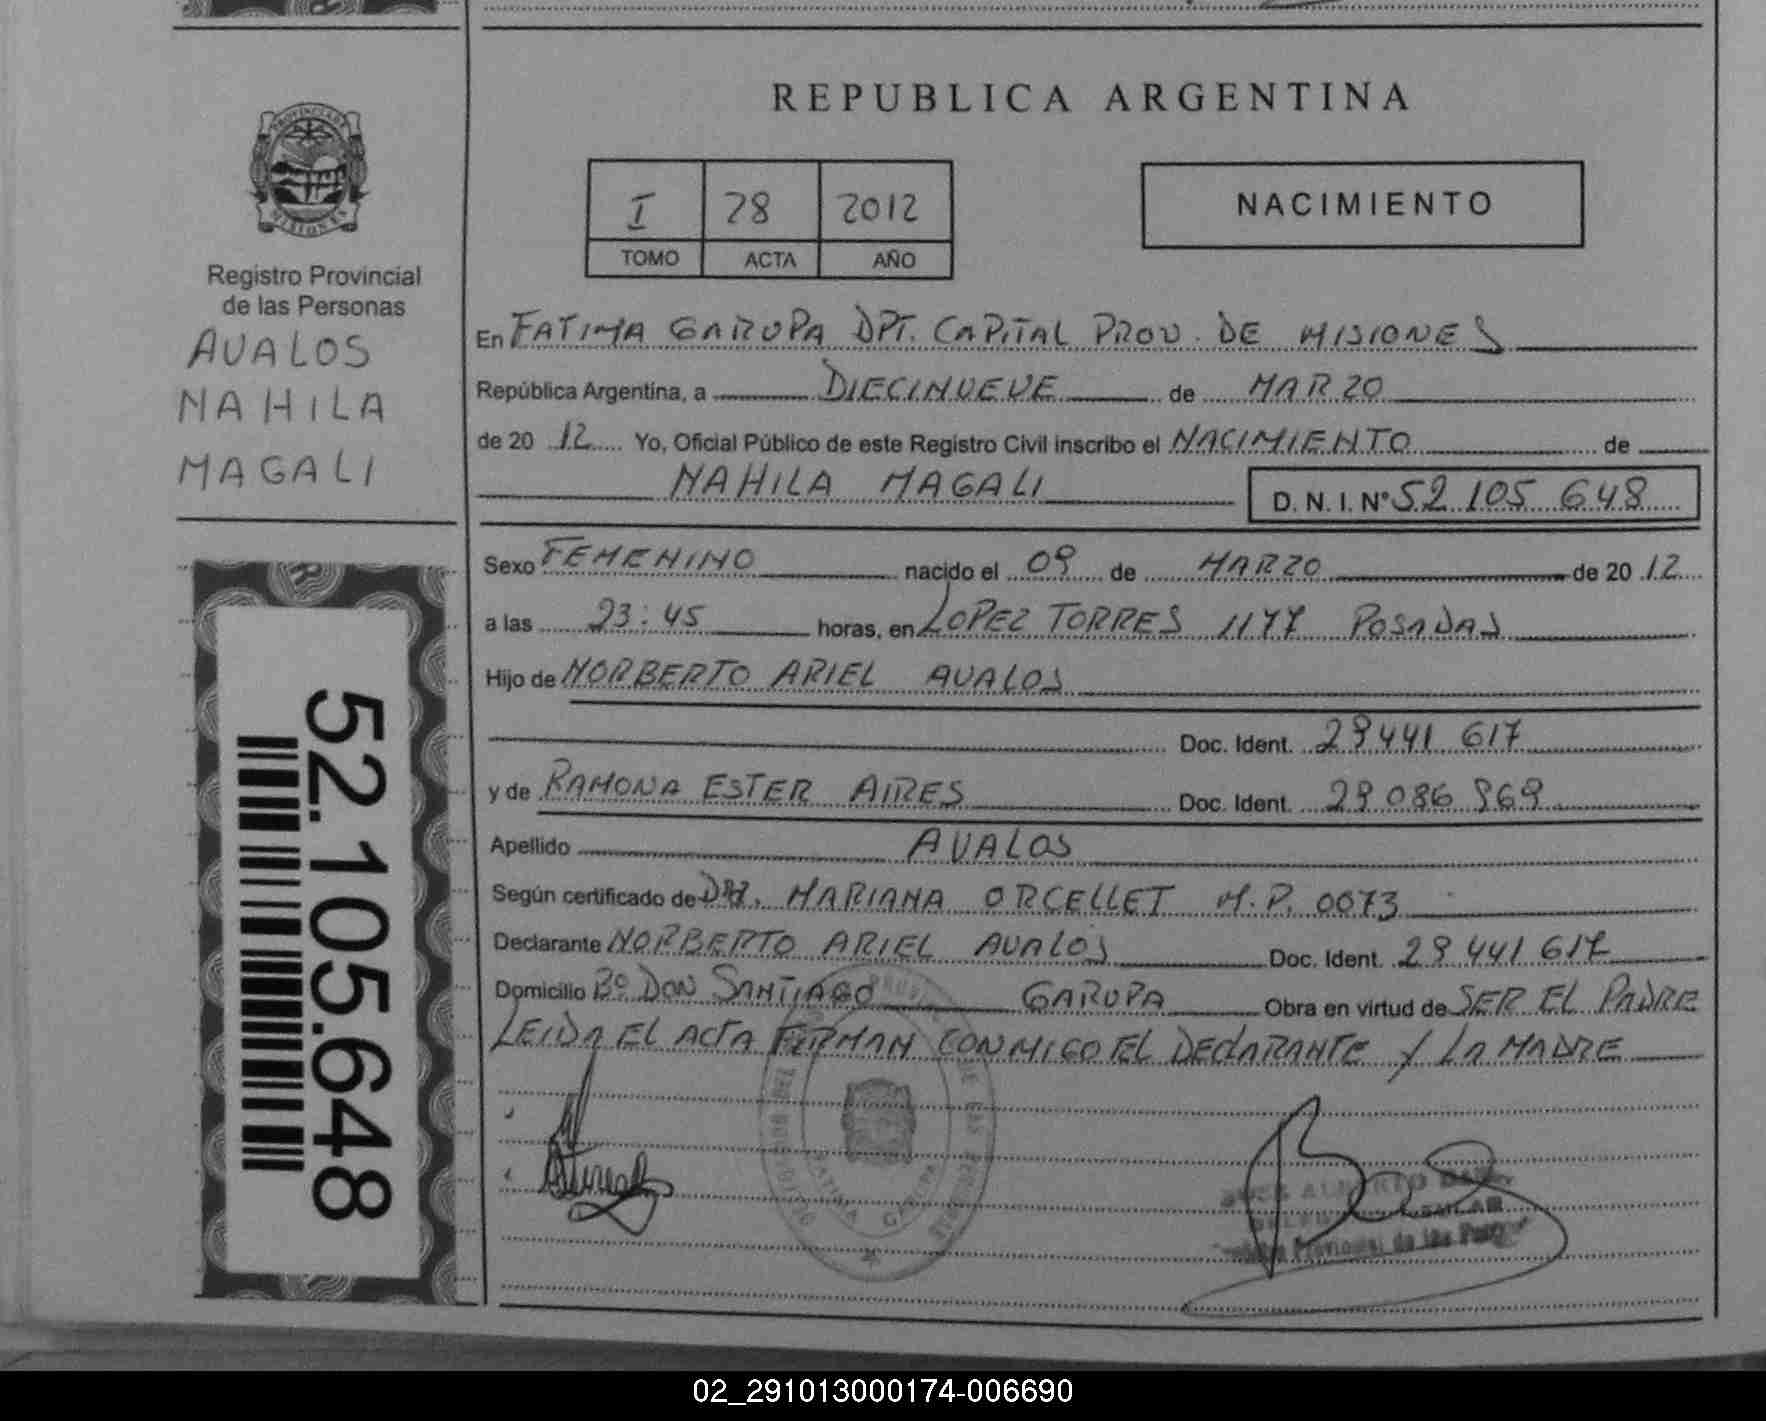 REPUBLICA ARGENTINA
I 28 2012
TOMO ACTA AÑO
NACIMIENTO
Registro Provincial
de las Personas
AVALOS
NAHILA
MAGALI
En FATIMA GARUPA DPT. CAPITAL PROV. DE MISIONES
República Argentina, a DIECINUEVE de MARZO
de 2012 Yo, Oficial Público de este Registro Civil inscribo el NACIMIENTO de
NAHILA MAGALI D. N. I. Nº 52 105 648
Sexo FEMENINO nacido el 09 de MARZO de 2012
a las 23:45 horas, en LOPEZ TORRES 1177 POSADAS
Hijo de NORBERTO ARIEL AVALOS
Doc. Ident. 29 441 617
y de RAMONA ESTER AIRES Doc. Ident. 29 086 969
Apellido AVALOS
Según certificado de DRA. MARIANA ORCELLET M.P. 0073
Declarante NORBERTO ARIEL AVALOS Doc. Ident. 29 441 617
Domicilio Bº DON SANTIAGO GARUPA Obra en virtud de SER EL PADRE
LEIDA EL ACTA FIRMAN CONMIGO EL DECLARANTE Y LA MADRE
52.105.648
FATIMA GARUPA
02_291013000174-006690